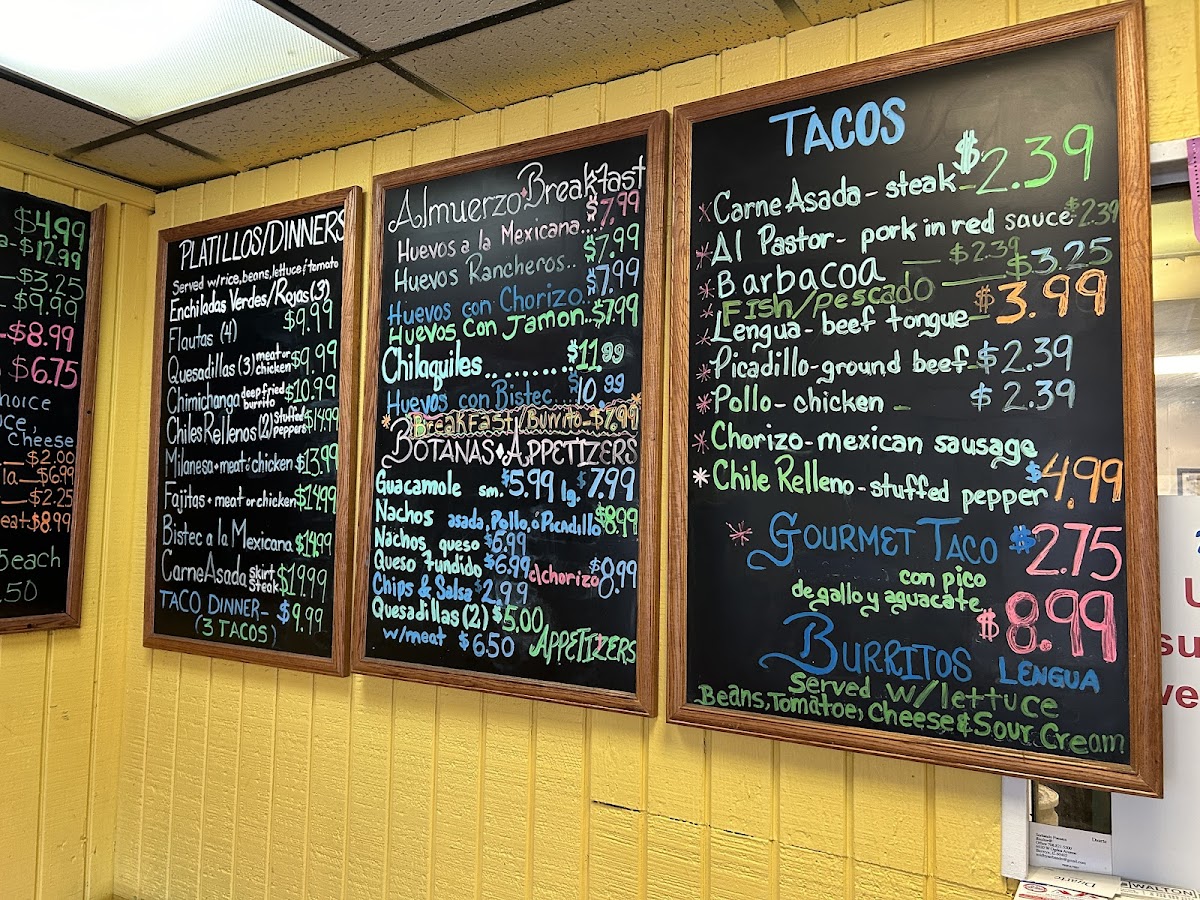 $4.99
$12.99
$3.25
$9.90
$8.99
$6.75
Cheese
$2.00
$6.99
$2.25
$8.99
5each
.50
PLATILLOS/DINNERS
Served w/rice, beans, lettuce/tomato
Enchiladas Verdes/Rojas (3)
Flautas (4) $9.99
Quesadillas (3) meat or chicken $9.99
Chimichanga deep fried burrito $10.99
Chiles Rellenos (2) Stuffed peppers $14.99
Milanesa - meat ó chicken $13.99
Fajitas - meat or chicken $14.99
Bistec a la Mexicana $14.99
Carne Asada skirt steak $19.99
TACO DINNER - $9.99
(3 TACOS)
Almuerzo • Breakfast
Huevos a la Mexicana... $7.99
Huevos Rancheros.. $7.99
Huevos con Chorizo. $7.99
Huevos con Jamon.. $7.99
Chilaquiles .......... $11.99
Huevos con Bistec... $10.99
Breakfast/Burrito - $7.99
BOTANAS • APPETIZERS
Guacamole sm. $5.99 lg. $7.99
Nachos asada, Pollo, ó Picadillo $8.99
Nachos queso $6.99
Queso fundido $6.99 c/chorizo $8.99
Chips & Salsa $2.99
Quesadillas (2) $5.00
w/meat $6.50 APPETIZERS
TACOS
Carne Asada - steak - $2.39
Al Pastor - pork in red sauce $2.39
Barbacoa — $2.39
FISH/PESCADO — $3.25
Lengua - beef tongue - $3.99
Picadillo - ground beef - $2.39
Pollo - chicken - $2.39
Chorizo - mexican sausage
Chile Relleno - stuffed pepper $4.99
GOURMET TACO $2.75
con pico
de gallo y aguacate
$8.99
BURRITOS LENGUA
Served w/lettuce
Beans, Tomatoe, Cheese & Sour Cream
WALTON